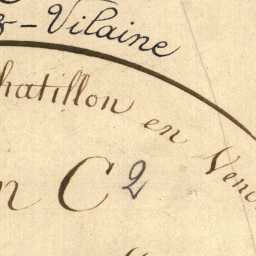 & - Vilaine
hatillon en Ven
n C 2